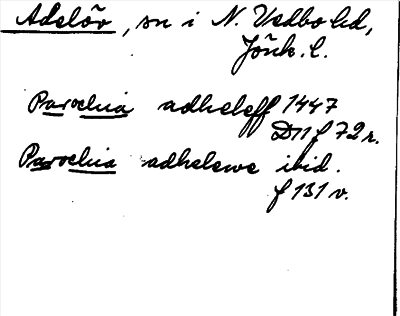 Adelöv, sn i N. Vedbo hd,
Jönk. l.
Parochia adheleff 1447
Dn f 72 r.
Parochia adhelewe ibid.
f 131 v.